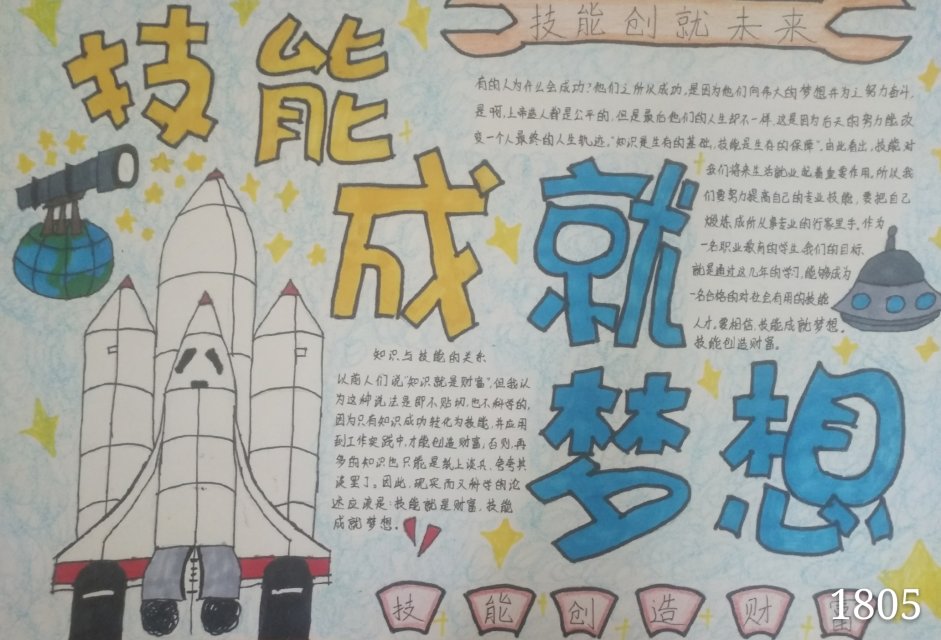 技能
成就
梦想
技能创就未来
有的人为什么会成功?他们之所以成功,是因为他们向伟大的梦想并为之努力奋斗,
是啊,上帝造人都是公平的,但是最后他们的人生却不一样,这是因为后天的努力能改
变一个人最终的人生轨迹。"知识是生存的基础,技能是生存的保障",由此看出,技能对
我们将来生活就业起着重要作用。所以我
们要努力提高自己的专业技能,要把自己
煅炼成所从事专业的行家里手,作为
一名职业教育的学生,我们的目标,
就是通过这几年的学习,能够成为
一名合格的对社会有用的技能
人才。要相信,技能成就梦想。
技能创造财富。
知识与技能的关系
以前人们说"知识就是财富",但我认
为这种说法是即不贴切,也不科学的,
因为只有知识成功转化为技能,并应用
到工作实践中,才能创造财富;否则,再
多的知识也只能是纸上谈兵、夸夸其
谈罢了。因此,现实而又科学的论
述应该是:技能就是财富,技能
成就梦想。
技能创造财富
1805